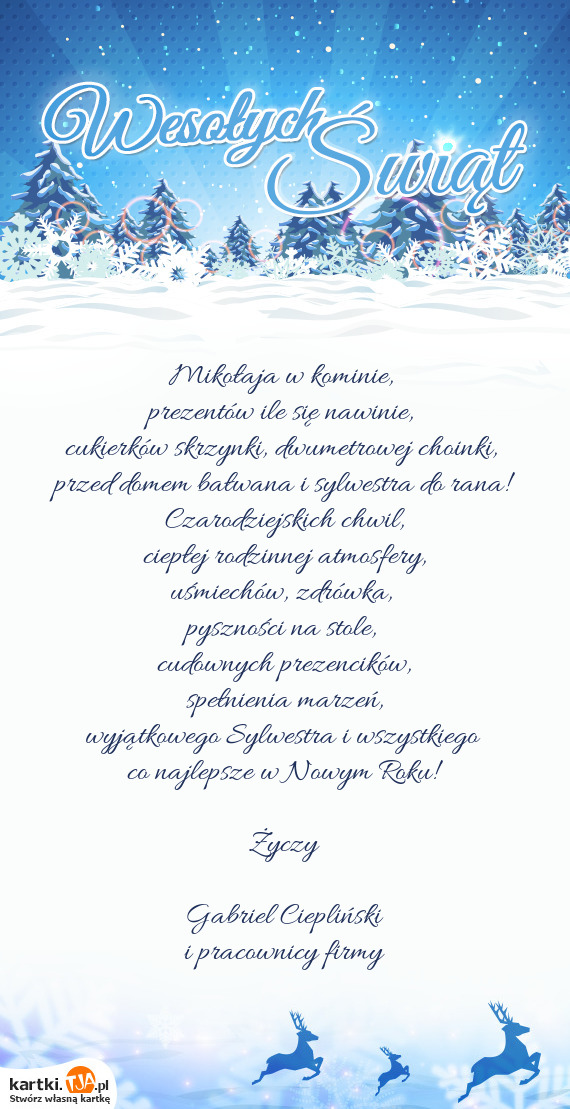 Wesołych
Świąt
Mikołaja w kominie,
prezentów ile się nawinie,
cukierków skrzynki, dwumetrowej choinki,
przed domem bałwana i sylwestra do rana!
Czarodziejskich chwil,
ciepłej rodzinnej atmosfery,
uśmiechów, zdrówka,
pyszności na stole,
cudownych prezencików,
spełnienia marzeń,
wyjątkowego Sylwestra i wszystkiego
co najlepsze w Nowym Roku!
Życzy
Gabriel Ciepliński
i pracownicy firmy
kartki.TJA.pl
Stwórz własną kartkę